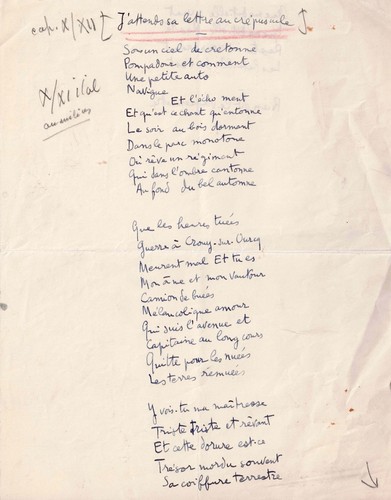 cap. X/XII [ J'attends sa lettre au crépuscule ]
X/XI ital
Sous un ciel de cretonne
Pompadour et comment
Une petite auto
Navigue
Et l'écho ment
Et qu'est ce chant qu'entonne
Le soir au bois dormant
Dans le parc monotone
Où rêve un régiment
Qui dans l'ombre cantonne
Au fond du bel automne
Que les heures tuées
Guerre à Crouy-sur-Ourcq
Meurent mal Et tu es
Mon âme et mon vautour
Camion de buées
Mélancolique amour
Qui suis l'avenue et
Capitaine au long cours
Quitte pour les nuées
Les terres remuées
Y vois-tu ma maîtresse
Triste triste et rêvant
Et cette dorure est-ce
Trésor mordu souvent
Sa coiffure terrestre